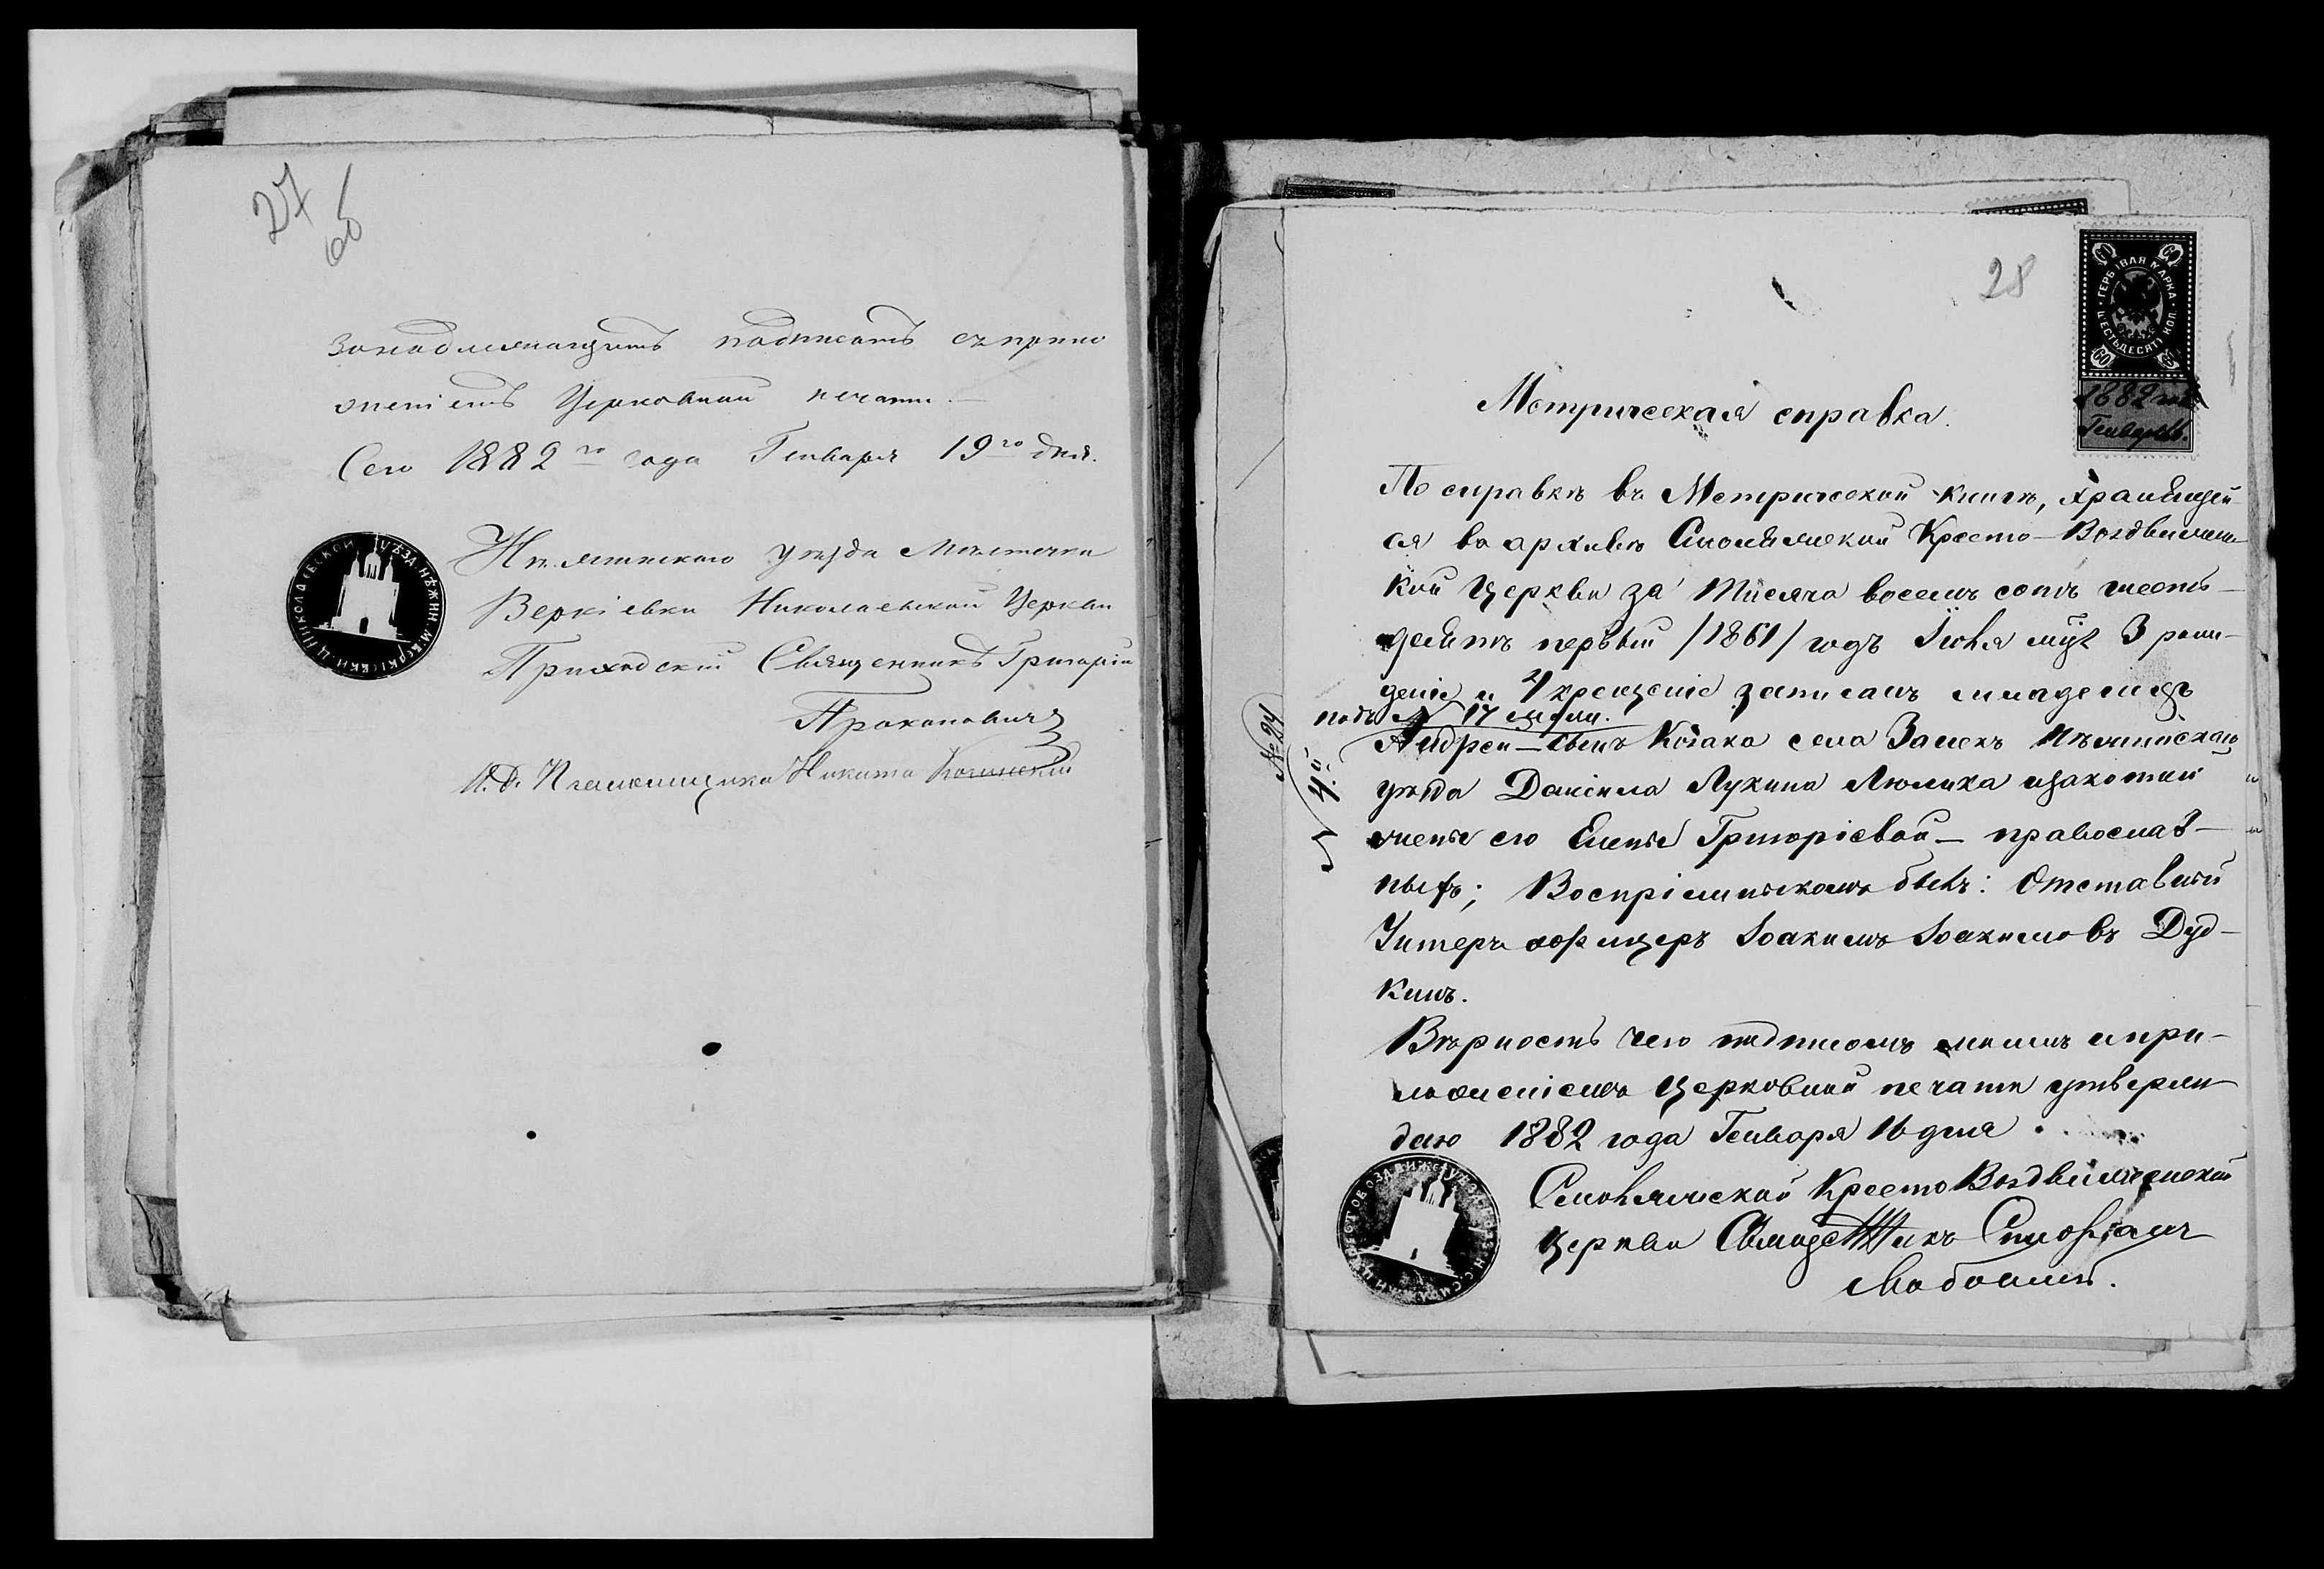 27
об
Занадлежащимъ подписомъ съ прило
женіемъ Церковной печати.
Сего 1882го года Генваря 19го дня.
Нѣжинскаго уѣзда Мѣстечка
Веркіевки Николаевской Церкви
Приходскій Священникъ Григорій
Прокоповичъ
И. д. Псаломщика Никита
28
ГЕРБОВАЯ МАРКА
ШЕСТЬДЕСЯТЪ КОП
60
1882 года
Генваря 16.
Метрическая справка.
По справкѣ въ Метрической книгѣ, хранящей
ся въ архивѣ Смоляжской Кресто-Воздвижен-
кой Церкви за Тысяча восемъ сотъ шесть-
десятъ первый /1861/ годъ Іюня мц҃ѣ 3 рож-
деніе и 4 крещеніе записанъ младенецъ
подъ № 17 муж. пол.
Андрей - сынъ Козака села Заньк Нѣжинскаго
уѣзда Даніила Лукина Люлька изаконной
жены его Елены Григоріевой - православ-
ныхъ; Воспріемникомъ былъ: Отставной
Унтеръ офицеръ Іоакимъ Іоакимовъ Дуд-
кинъ.
Вѣрность чего подписомъ моимъ и при-
ложеніемъ Церковной печати утверж-
даю 1882 года Генваря 16 дня
Смоляжской Кресто Воздвиженской
Церкви Священникъ Симофіанъ
№ 24